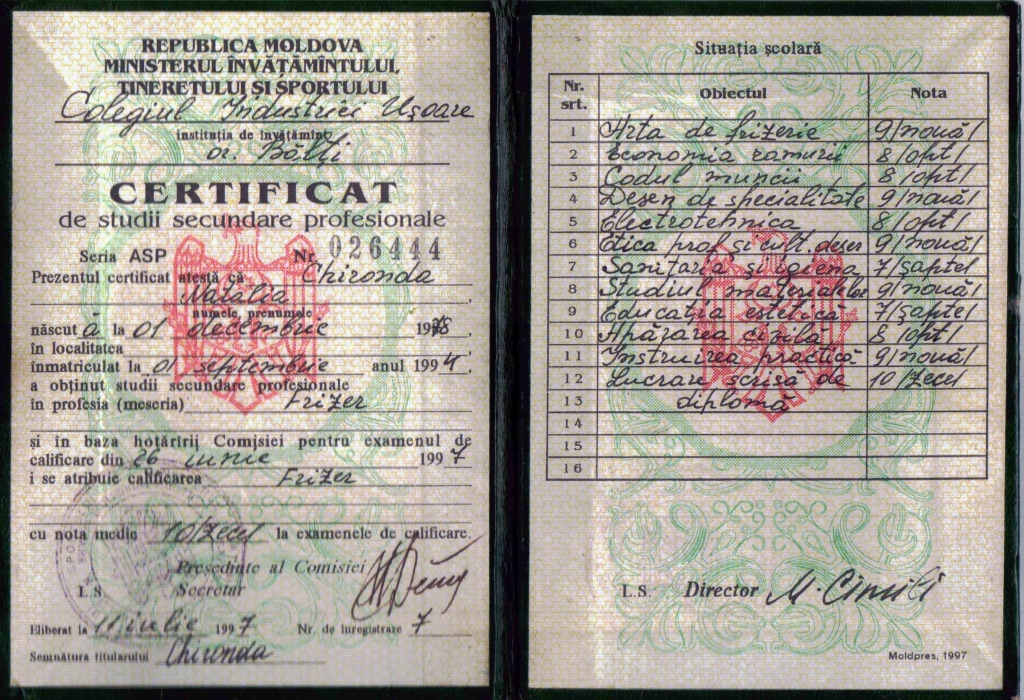 REPUBLICA MOLDOVA
MINISTERUL ÎNVĂŢĂMÎNTULUI,
TINERETULUI ŞI SPORTULUI
Colegiul Industriei Uşoare
instituţia de învăţămînt
or. Bălţi
CERTIFICAT
de studii secundare profesionale
Seria ASP Nr. 026444
Prezentul certificat atestă că Chironda
Natalia
numele, prenumele
născută la 01 decembrie 1978,
în localitatea
înmatriculat la 01 septembrie anul 1994,
a obţinut studii secundare profesionale
în profesia (meseria) Frizer
şi în baza hotărîrii Comisiei pentru examenul de
calificare din 26 iunie 1997
i se atribuie calificarea Frizer
cu nota medie 10/zece/ la examenele de calificare.
Preşedinte al Comisiei
L.S. Secretar
Eliberat la 11 iulie 1997 Nr. de înregistrare 7
Semnătura titularului Chironda
Situaţia şcolară
Nr. srt. Obiectul Nota
1 Arta de frizerie 9/nouă/
2 Economia ramurii 8/opt/
3 Codul muncii 8/opt/
4 Desen de specialitate 9/nouă/
5 Electrotehnica 8/opt/
6 Etica prof. şi cult. deser 9/nouă/
7 Sanitaria şi igiena 7/şapte/
8 Studiul materialelor 9/nouă/
9 Educaţia estetică 7/şapte/
10 Apărarea civilă 8/opt/
11 Instruirea practică 9/nouă/
12 Lucrare scrisă de 10/zece/
13 diplomă
14
15
16
L.S. Director
Moldpres, 1997